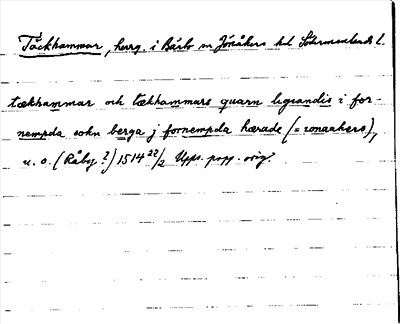 Täckhammar, herrg. i Bärbo sn Jönåkers hd Södermanlands l.
tækhammar och tækhammars quarn ligiandis i for-
nempda sokn berga j fornempda hærade (= ionaakers),
u. o. (Råby?) 1514 22/2 Upps. papp. orig.